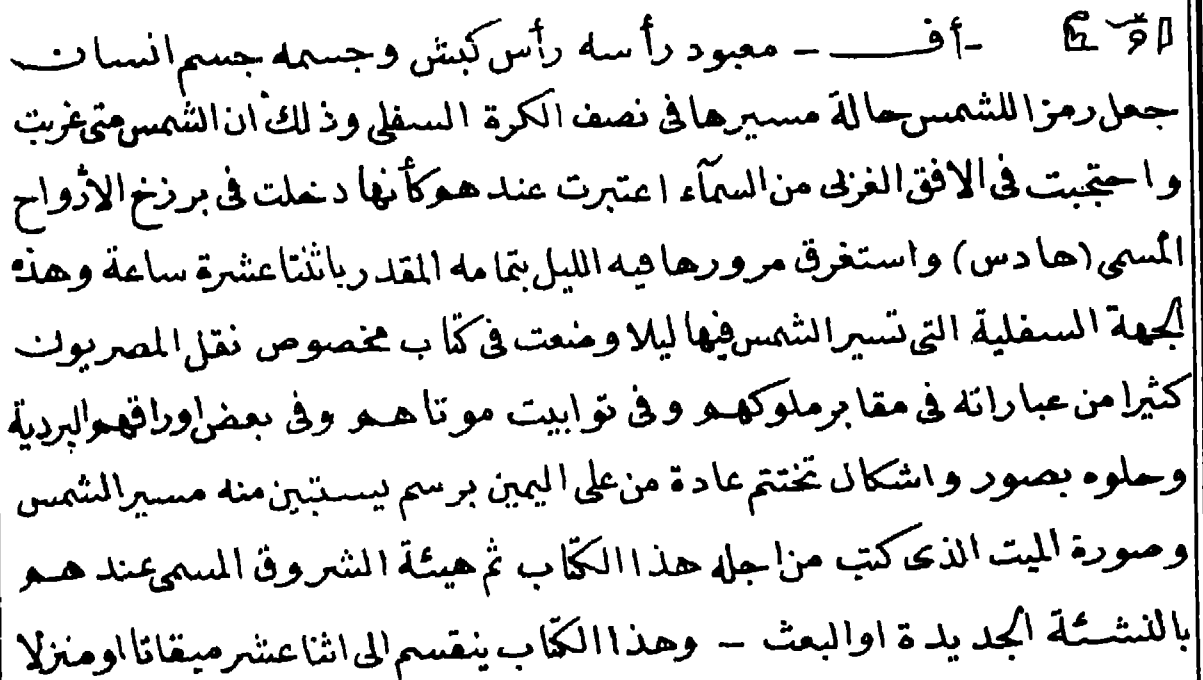 -أف- معبود رأسه رأس كبش وجسمه جسم انسان
جعل رمزا للشمس حالة مسيرها فى نصف الكرة السفلى وذلك ان الشمس متى غربت
واحتجبت فى الافق الغربى من السمآء اعتبرت عندهم كأنها دخلت فى برزخ الأرواح
المسمى (هادس) واستغرق مرورها فيه الليل بتمامه المقدر باثنتا عشرة ساعة وهذه
الجهة السفلية التى تسير الشمس فيها ليلا وضعت فى كتاب مخصوص نقل المصريون
كثيرا من عباراته فى مقابر ملوكهم وفى توابيت موتاهم وفى بعض اوراقهم البردية
وحلوه بصور واشكال تختتم عادة من على اليمين برسم يستبين منه مسير الشمس
وصورة الميت الذى كتب من اجله هذا الكتاب ثم هيئة الشروق المسمى عندهم
بالنشئة الجديدة او البعث - وهذا الكتاب ينقسم الى اثنا عشر ميقاتا او منزلا